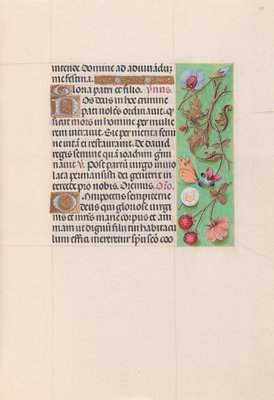 intende Domine ad adiuvãdũ
me festina.
Gloria patri et filio. Ymnus.
Nos deus in hoc crimine
patri noles ordinavit. q̃
sicut mors in homine per mulie
rem intravit. Sic per menta femi
ne vita est restaurata. De david
regis semine qui Joachim genu
Post partũ virgo invio
lata permansisti dei genitrix in
tercede pro nobis. Oremus. Oro.
Omnipotens sempiterne
deus qui gloriose virgi
nis et mris marie corpus et aim
ut dignũ filii tui habitacu
lum effici mereretur spũ sco coo